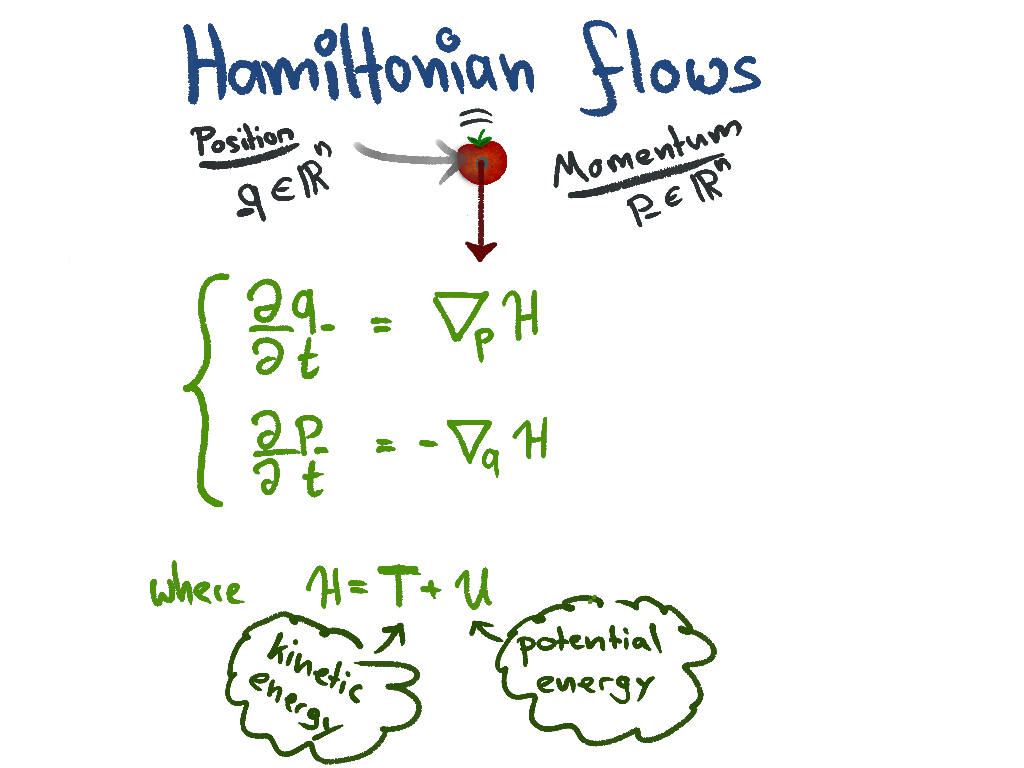 Hamiltonian flows
Position
q ∈ ℝⁿ
Momentum
p ∈ ℝⁿ
∂q/∂t = ∇ₚ H
∂p/∂t = - ∇q H
where H = T + U
kinetic
energy
potential
energy